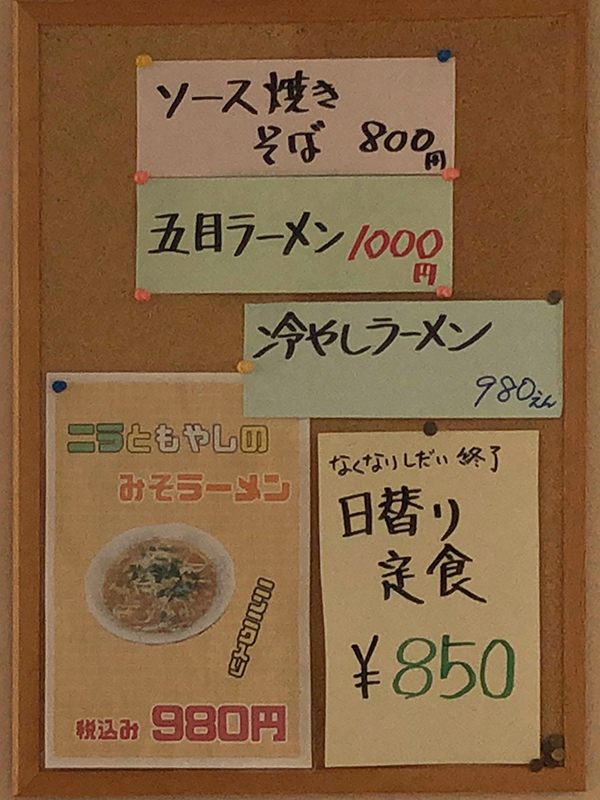 ソース焼き
そば 800円
五目ラーメン1000
円
冷やしラーメン
980えん
ニラともやしの
みそラーメン
ピリカラ!!
税込み 980円
なくなりしだい 終了
日替り
定食
¥850